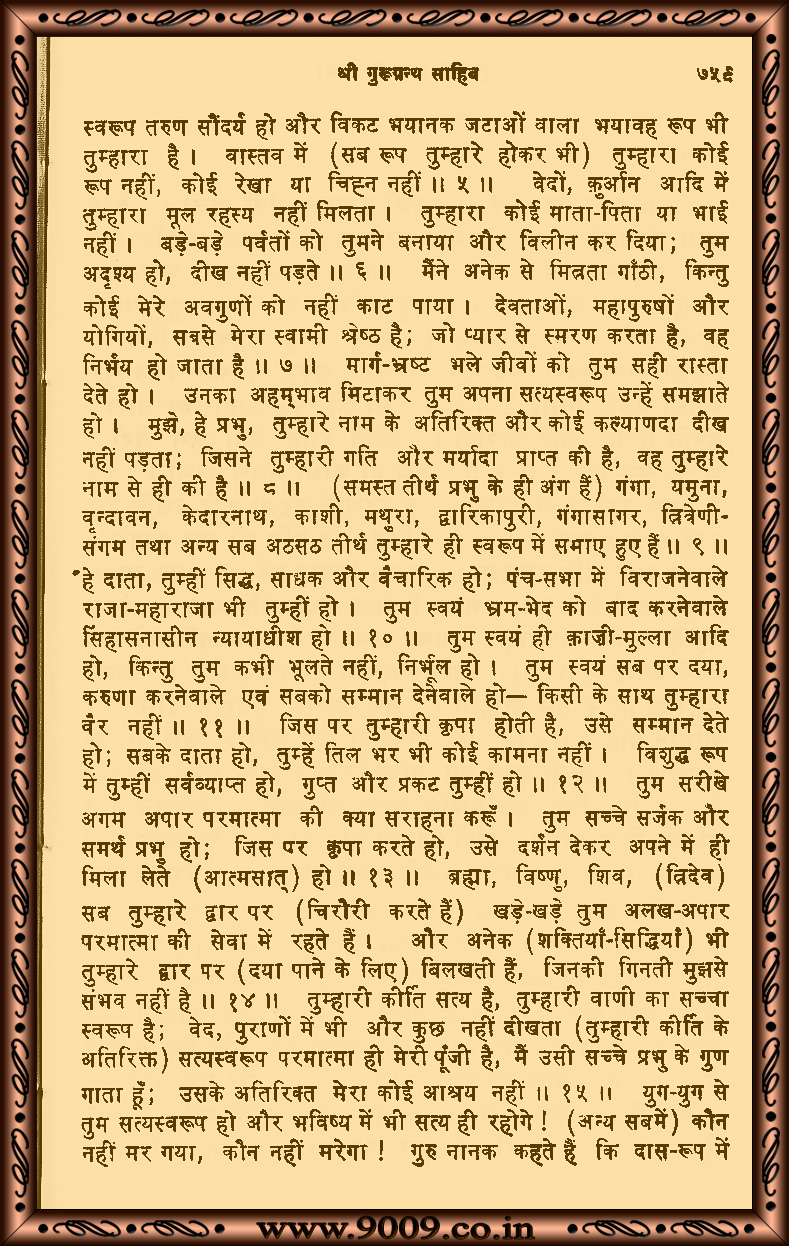 श्री गुरूग्रन्थ साहिब ७५९
स्वरूप तरुण सौंदर्य हो और विकट भयानक जटाओं वाला भयावह रूप भी
तुम्हारा है । वास्तव में (सब रूप तुम्हारे होकर भी) तुम्हारा कोई
रूप नहीं, कोई रेखा या चिह्न नहीं ॥ ५ ॥ वेदों, क़ुर्आन आदि में
तुम्हारा मूल रहस्य नहीं मिलता । तुम्हारा कोई माता-पिता या भाई
नहीं । बड़े-बड़े पर्वतों को तुमने बनाया और विलीन कर दिया; तुम
अदृश्य हो, दीख नहीं पड़ते ॥ ६ ॥ मैंने अनेक से मित्रता गाँठी, किन्तु
कोई मेरे अवगुणों को नहीं काट पाया । देवताओं, महापुरुषों और
योगियों, सबसे मेरा स्वामी श्रेष्ठ है; जो प्यार से स्मरण करता है, वह
निर्भय हो जाता है ॥ ७ ॥ मार्ग-भ्रष्ट भले जीवों को तुम सही रास्ता
देते हो । उनका अहम्‌भाव मिटाकर तुम अपना सत्यस्वरूप उन्हें समझाते
हो । मुझे, हे प्रभु, तुम्हारे नाम के अतिरिक्त और कोई कल्याणदा दीख
नहीं पड़ता; जिसने तुम्हारी गति और मर्यादा प्राप्त की है, वह तुम्हारे
नाम से ही की है ॥ ८ ॥ (समस्त तीर्थ प्रभु के ही अंग हैं) गंगा, यमुना,
वृन्दावन, केदारनाथ, काशी, मथुरा, द्वारिकापुरी, गंगासागर, त्रिवेणी-
संगम तथा अन्य सब अठसठ तीर्थ तुम्हारे ही स्वरूप में समाए हुए हैं ॥ ९ ॥
हे दाता, तुम्हीं सिद्ध, साधक और वैचारिक हो; पंच-सभा में विराजनेवाले
राजा-महाराजा भी तुम्हीं हो । तुम स्वयं भ्रम-भेद को बाद करनेवाले
सिंहासनासीन न्यायाधीश हो ॥ १० ॥ तुम स्वयं ही क़ाज़ी-मुल्ला आदि
हो, किन्तु तुम कभी भूलते नहीं, निर्भूल हो । तुम स्वयं सब पर दया,
करुणा करनेवाले एवं सबको सम्मान देनेवाले हो— किसी के साथ तुम्हारा
वैर नहीं ॥ ११ ॥ जिस पर तुम्हारी कृपा होती है, उसे सम्मान देते
हो; सबके दाता हो, तुम्हें तिल भर भी कोई कामना नहीं । विशुद्ध रूप
में तुम्हीं सर्वव्याप्त हो, गुप्त और प्रकट तुम्हीं हो ॥ १२ ॥ तुम सरीखे
अगम अपार परमात्मा की क्या सराहना करूँ । तुम सच्चे सर्जक और
समर्थ प्रभु हो; जिस पर कृपा करते हो, उसे दर्शन देकर अपने में ही
मिला लेते (आत्मसात्) हो ॥ १३ ॥ ब्रह्मा, विष्णु, शिव, (त्रिदेव)
सब तुम्हारे द्वार पर (चिरौरी करते हैं) खड़े-खड़े तुम अलख-अपार
परमात्मा की सेवा में रहते हैं । और अनेक (शक्तियाँ-सिद्धियाँ) भी
तुम्हारे द्वार पर (दया पाने के लिए) बिलखती हैं, जिनकी गिनती मुझसे
संभव नहीं है ॥ १४ ॥ तुम्हारी कीर्ति सत्य है, तुम्हारी वाणी का सच्चा
स्वरूप है; वेद, पुराणों में भी और कुछ नहीं दीखता (तुम्हारी कीर्ति के
अतिरिक्त) सत्यस्वरूप परमात्मा ही मेरी पूंजी है, मैं उसी सच्चे प्रभु के गुण
गाता हूँ; उसके अतिरिक्त मेरा कोई आश्रय नहीं ॥ १५ ॥ युग-युग से
तुम सत्यस्वरूप हो और भविष्य में भी सत्य ही रहोगे ! (अन्य सबमें) कौन
नहीं मर गया, कौन नहीं मरेगा ! गुरु नानक कहते हैं कि दास-रूप में
www.9009.co.in